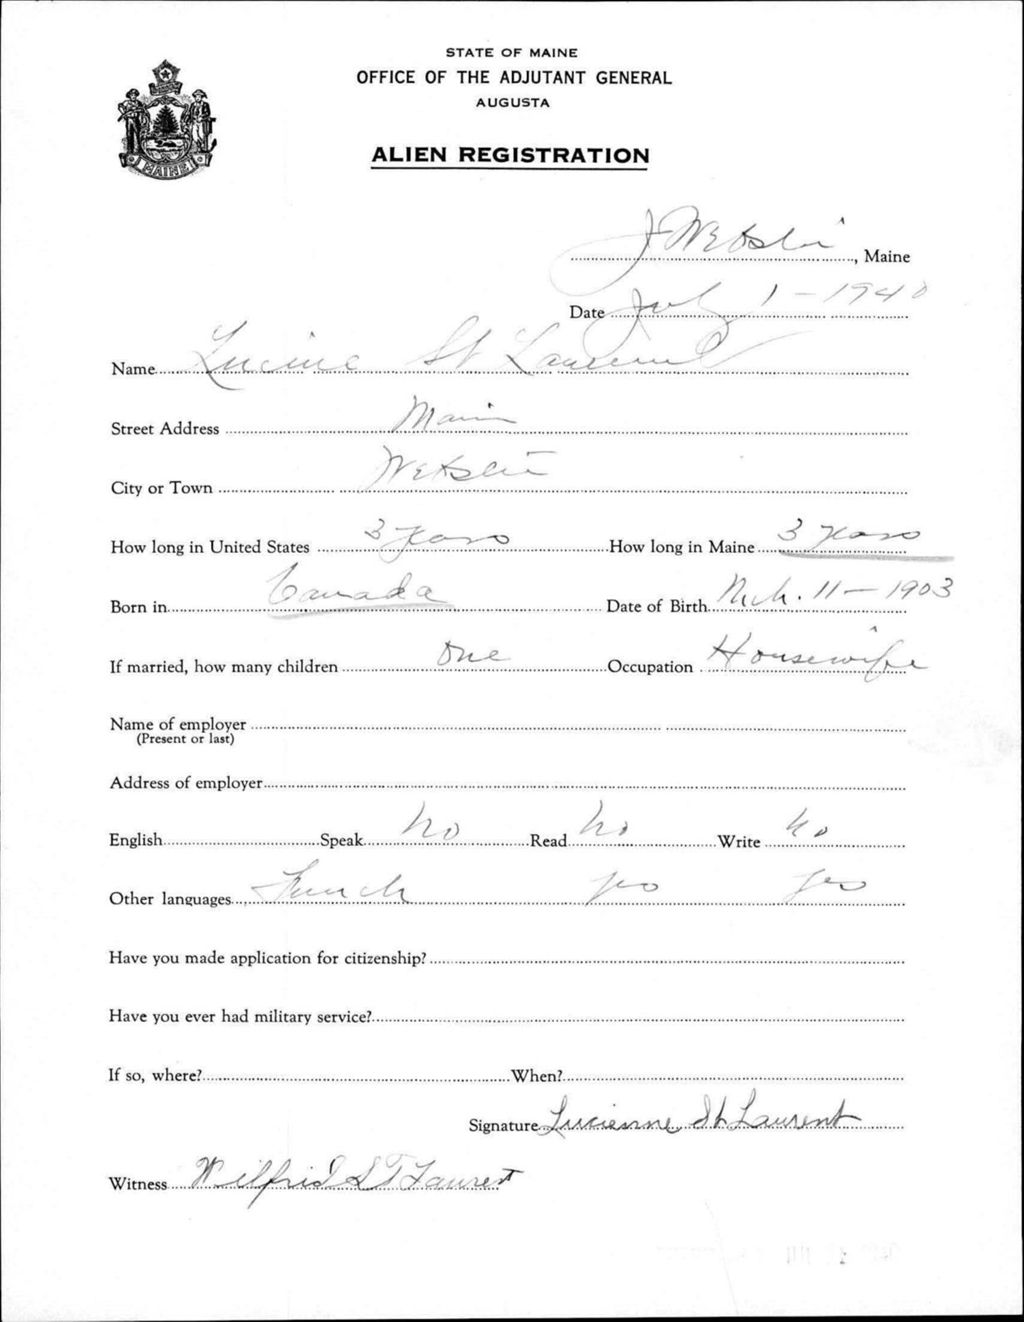 STATE OF MAINE
OFFICE OF THE ADJUTANT GENERAL
AUGUSTA
MAINE
ALIEN REGISTRATION
Webster, Maine
Date July 1 - 1940
Name Lucine St Laurent
Street Address Main
City or Town Webster
How long in United States 3 years How long in Maine 3 years
Born in Canada Date of Birth Mch. 11 - 1903
If married, how many children One Occupation Housewife
Name of employer
(Present or last)
Address of employer
English Speak No Read No Write No
Other languages French yes yes
Have you made application for citizenship?
Have you ever had military service?
If so, where? When?
Signature Lucienne St Laurent
Witness Wilfrid ST Laurent